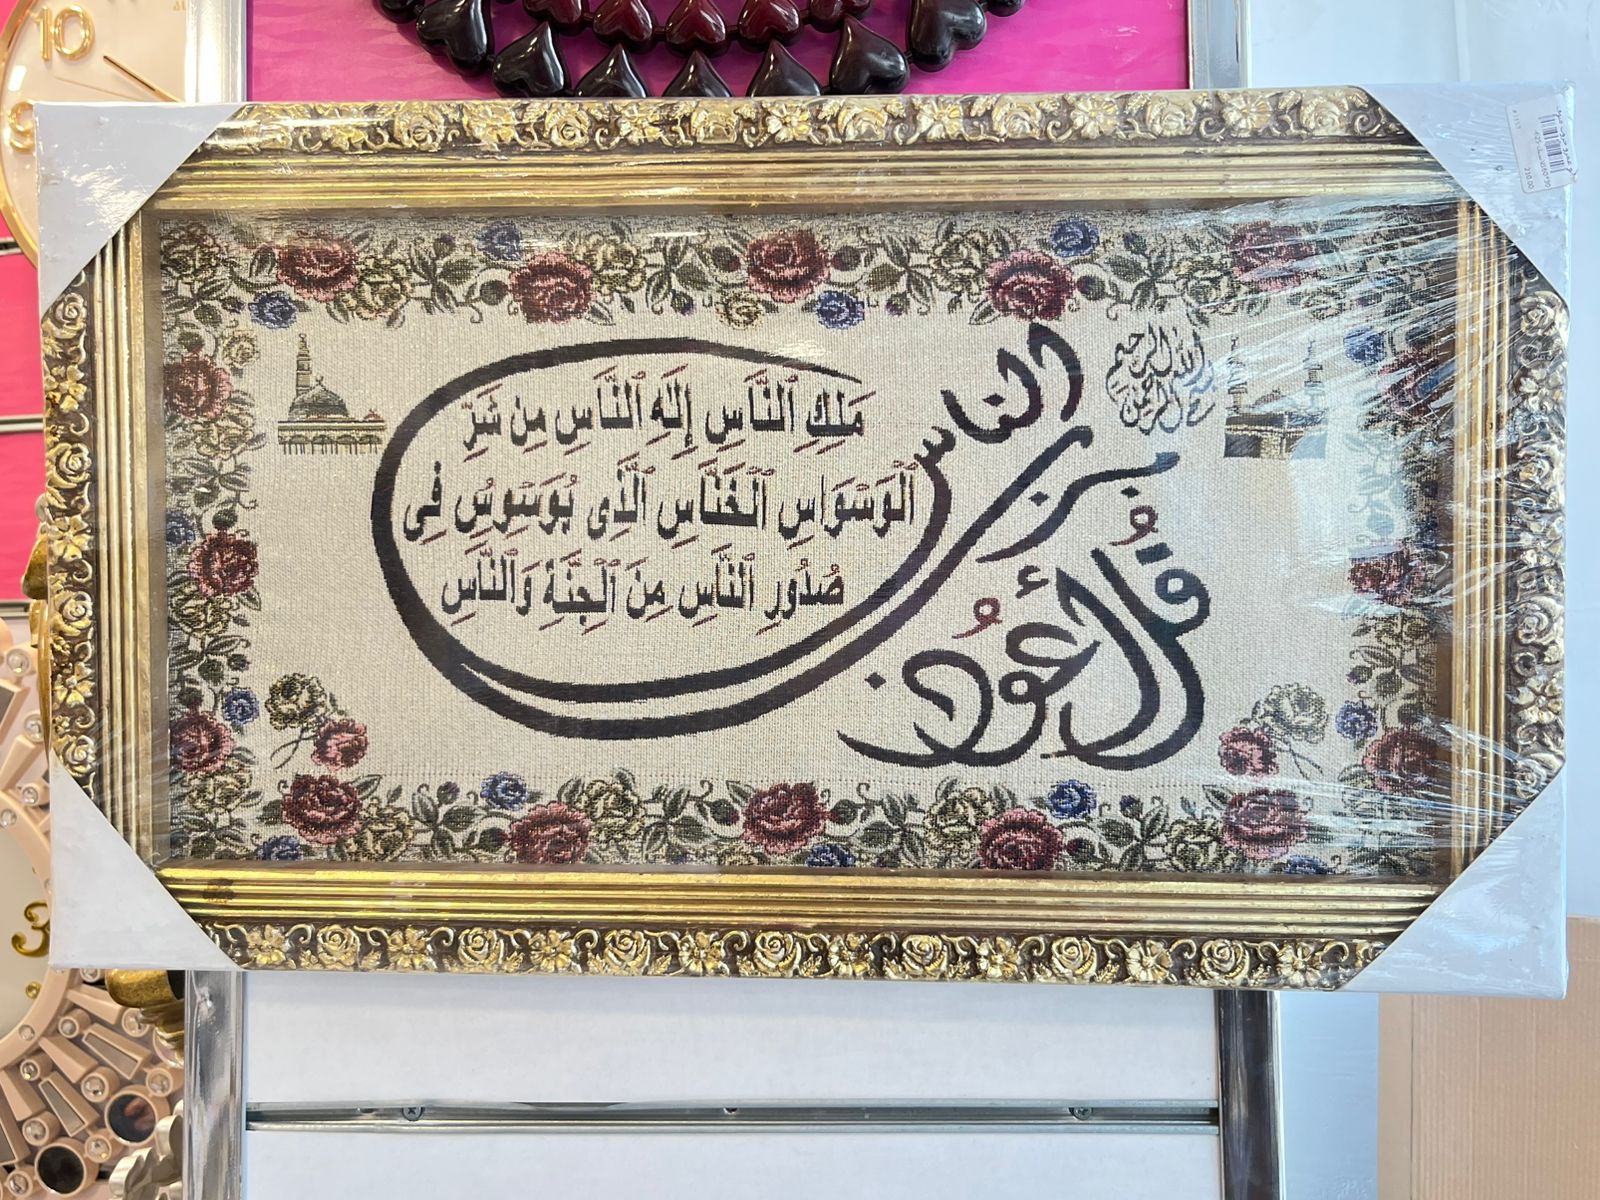 بسم الله الرحمن الرحيم
قُل أعُوذ برب الناس
مَلِكِ ٱلنَّاسِ إِلَٰهِ ٱلنَّاسِ مِن شَرِّ
ٱلْوَسْوَاسِ ٱلْخَنَّاسِ ٱلَّذِى يُوَسْوِسُ فِى
صُدُورِ ٱلنَّاسِ مِنَ ٱلْجِنَّةِ وَٱلنَّاسِ
10
9
3
210.00